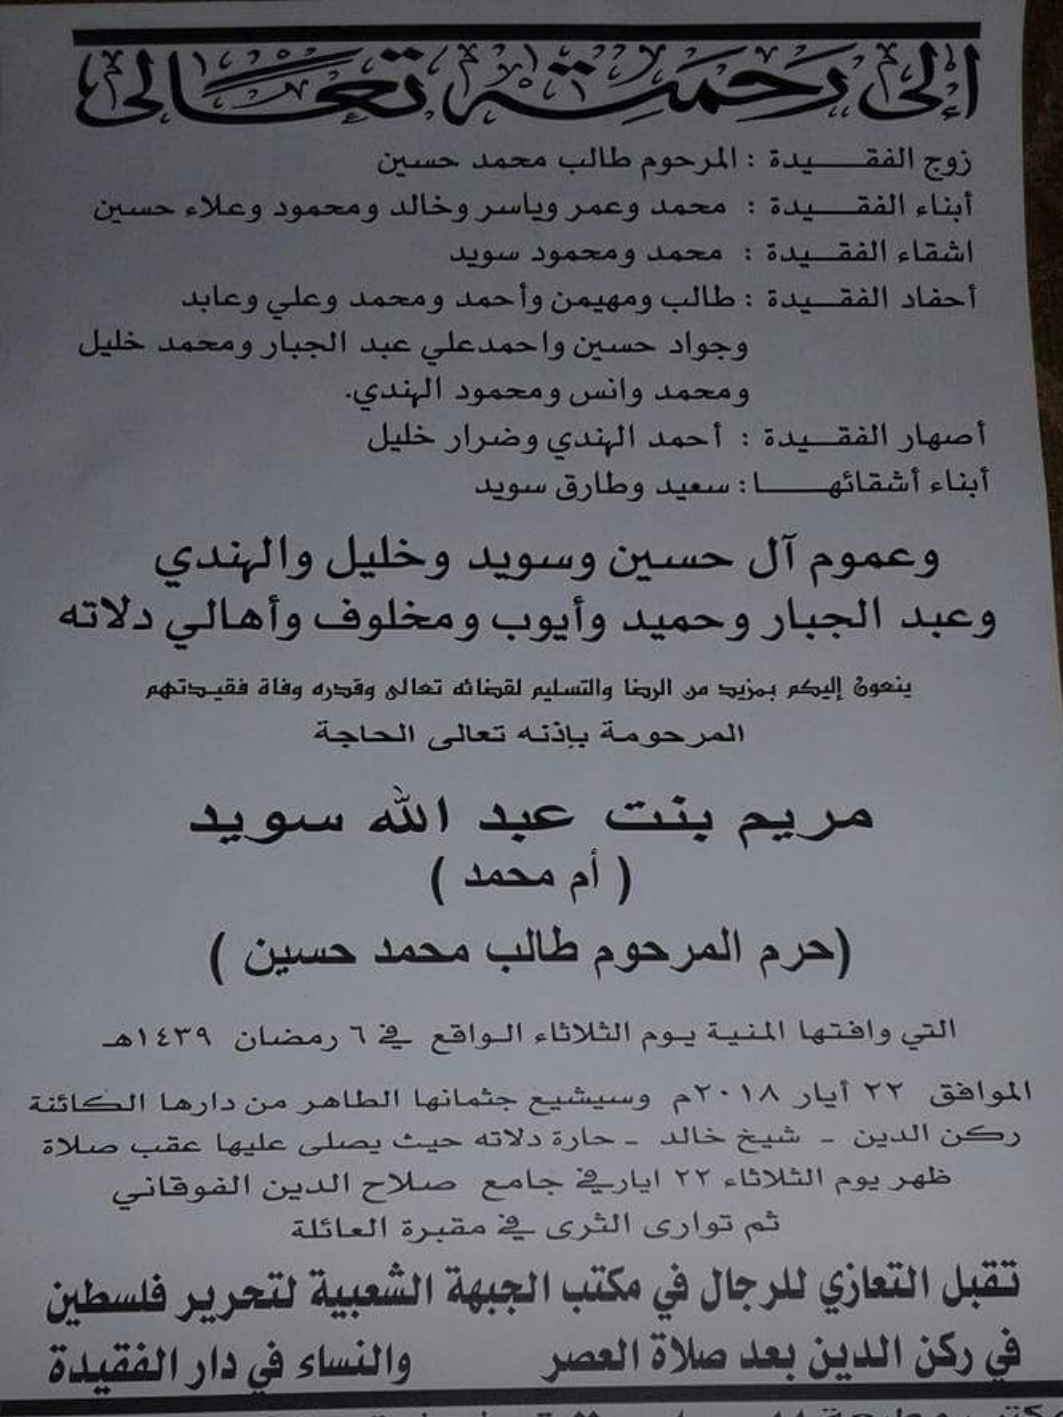 إلى رحمته تعالى
زوج الفقيدة : المرحوم طالب محمد حسين
أبناء الفقيدة : محمد وعمر وياسر وخالد ومحمود وعلاء حسين
اشقاء الفقيدة : محمد ومحمود سويد
أحفاد الفقيدة : طالب ومهيمن وأحمد ومحمد وعلي وعابد
وجواد حسين واحمدعلي عبد الجبار ومحمد خليل
ومحمد وانس ومحمود الهندي.
أصهار الفقيدة : أحمد الهندي وضرار خليل
أبناء أشقائها : سعيد وطارق سويد
وعموم آل حسين وسويد وخليل والهندي
وعبد الجبار وحميد وأيوب ومخلوف وأهالي دلاته
ينعون إليكم بمزيد من الرضا والتسليم لقضائه تعالى وقدره وفاة فقيدتهم
المرحومة بإذنه تعالى الحاجة
مريم بنت عبد الله سويد
( أم محمد )
(حرم المرحوم طالب محمد حسين )
التي وافتها المنية يوم الثلاثاء الواقع في ٦ رمضان ١٤٣٩هـ
الموافق ٢٢ أيار ٢٠١٨م وسيشيع جثمانها الطاهر من دارها الكائنة
ركن الدين - شيخ خالد - حارة دلاته حيث يصلى عليها عقب صلاة
ظهر يوم الثلاثاء ٢٢ ايار في جامع صلاح الدين الفوقاني
ثم توارى الثرى في مقبرة العائلة
تقبل التعازي للرجال في مكتب الجبهة الشعبية لتحرير فلسطين
في ركن الدين بعد صلاة العصر والنساء في دار الفقيدة